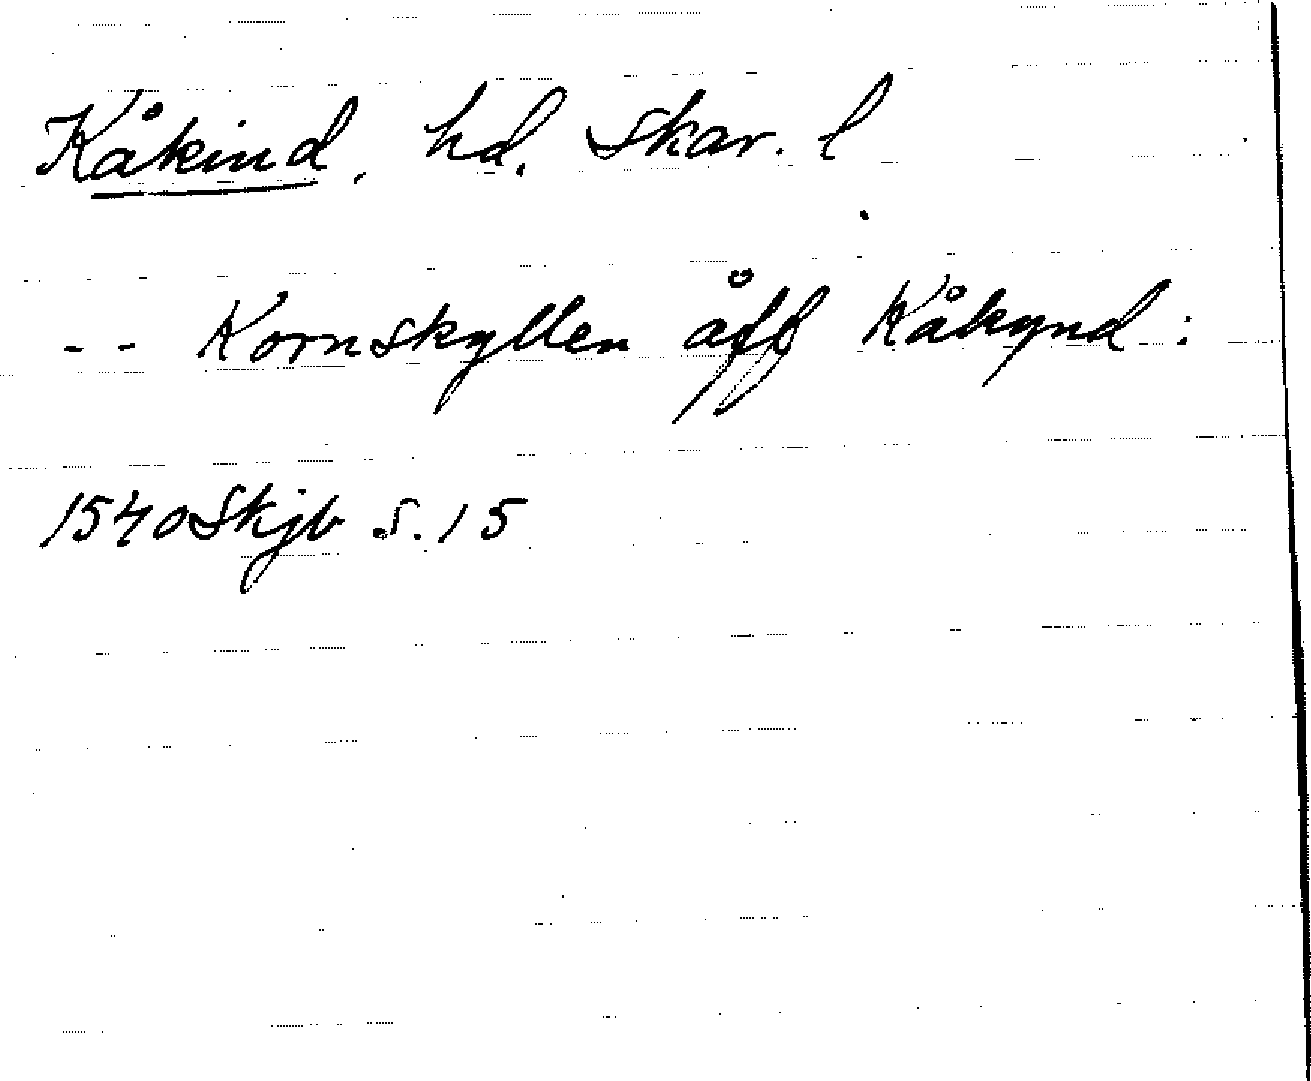 Kåkind, hd. Skar. l
-- Kornskyllen åff Kåkynd:
1540 Skjb s. 15